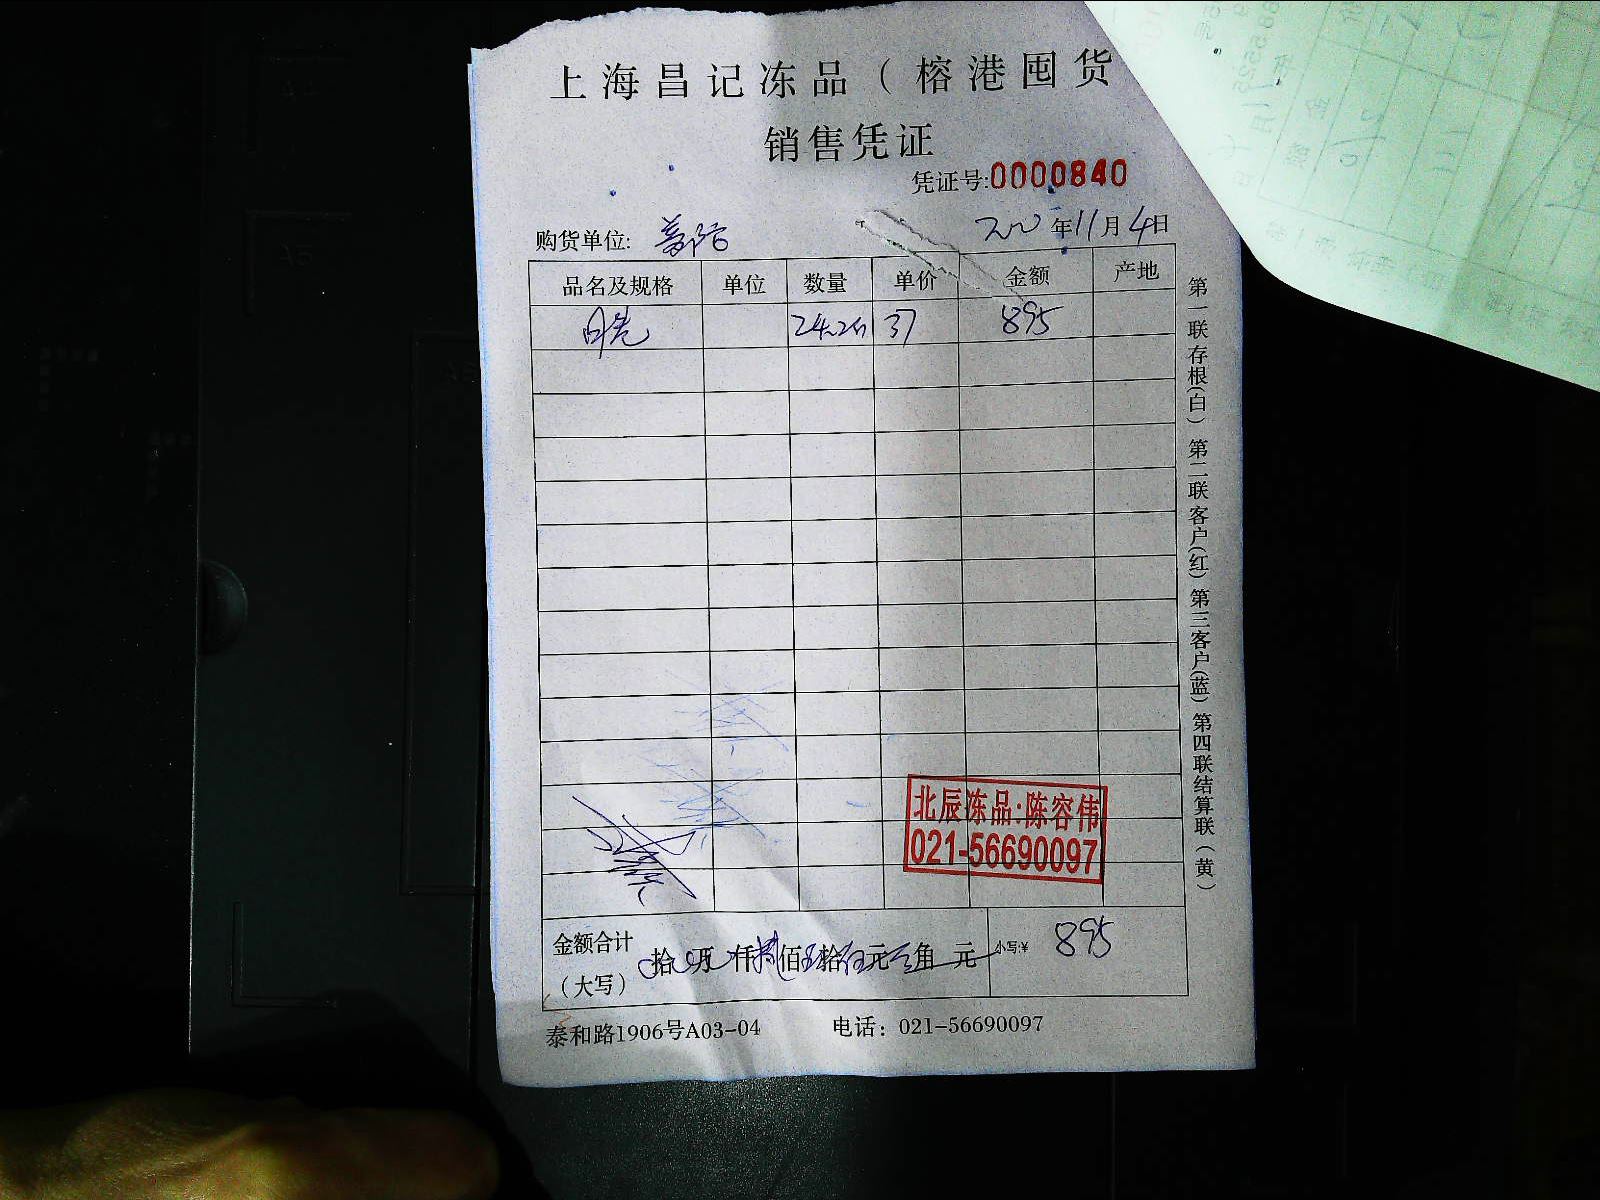 上海昌记冻品（榕港囤货
销售凭证
凭证号:0000840
购货单位:
年11月4日
品名及规格 单位 数量 单价 金额 产地
37 895
北辰冻品:陈容伟
021-56690097
金额合计（大写） 拾 万 仟 佰 拾 元 角 元 小写¥ 895
泰和路1906号A03-04 电话：021-56690097
第一联存根(白) 第二联客户(红) 第三客户(蓝) 第四联结算联(黄)